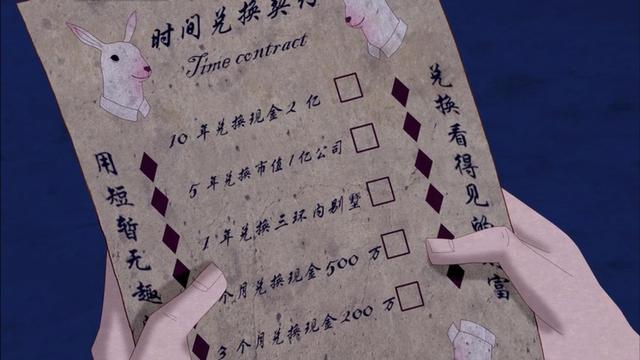 时间兑换契约
Time contract
10 年兑换现金 2 亿
5 年兑换市值 1 亿公司
1 年兑换三环内别墅
个月兑换现金 500 万
3 个月兑换现金 200 万
用短暂无趣
兑换看得见的财富